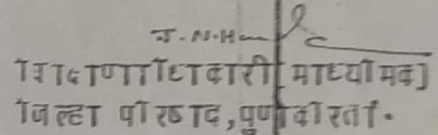 शिक्षणाधिकारी( माध्यमिक)
जिल्हा परिषद,पुणे करिता.